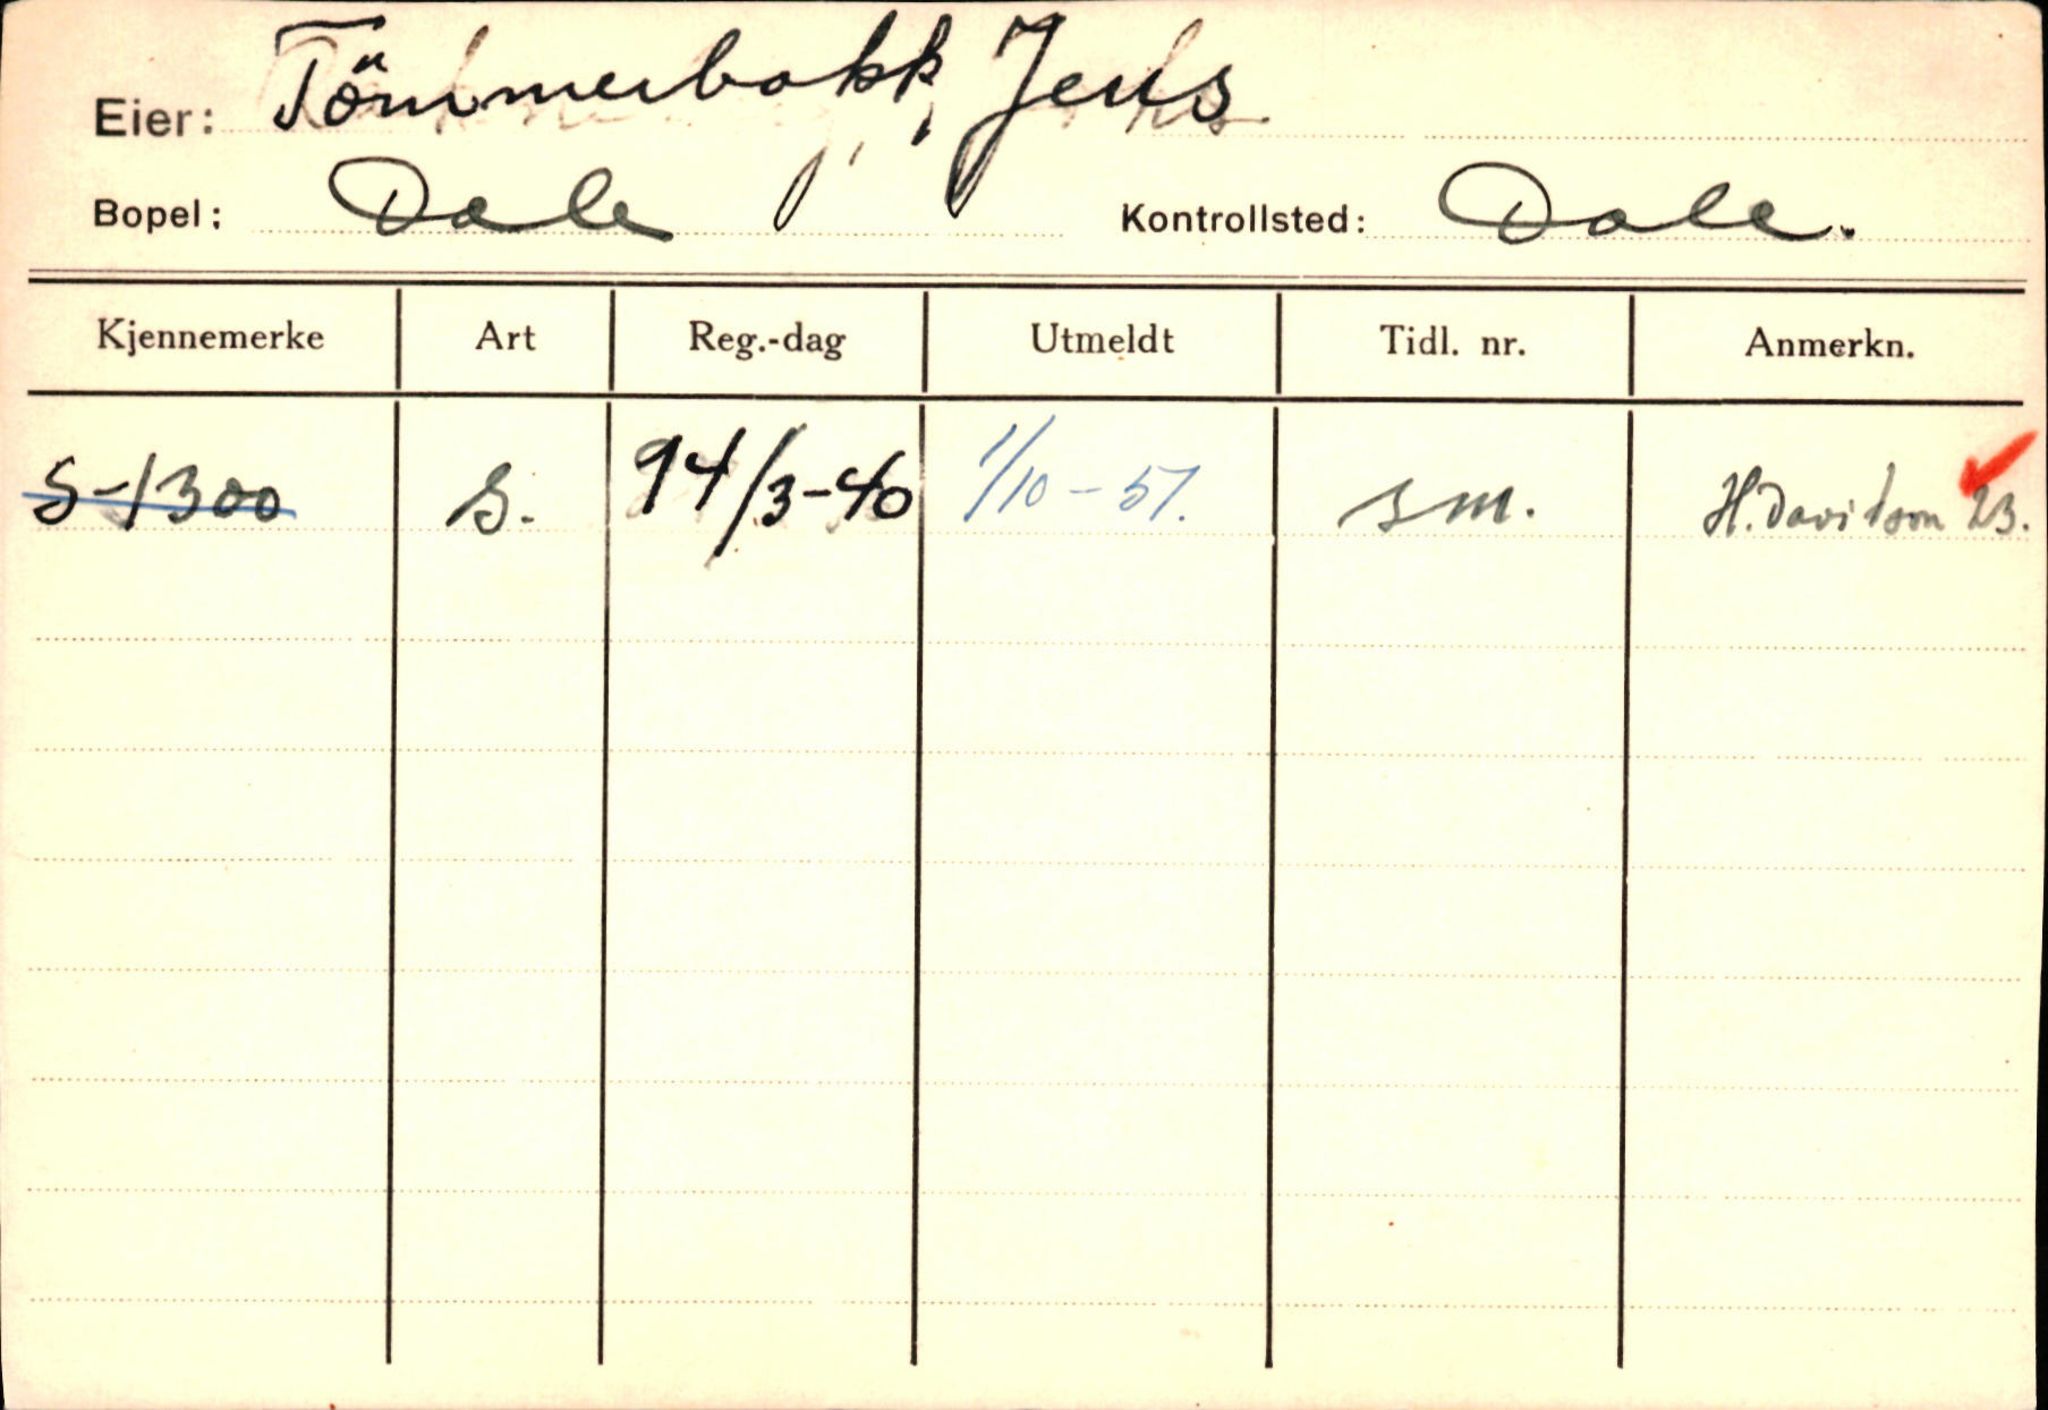 Eier: Tömmerbakk, Jens
Bopel: Dale Kontrollsted: Dale.
Kjennemerke Art Reg.-dag Utmeldt Tidl. nr. Anmerkn.
S-1300 S. 14/3-40 1/10-51. sm. H. Davidson 23.